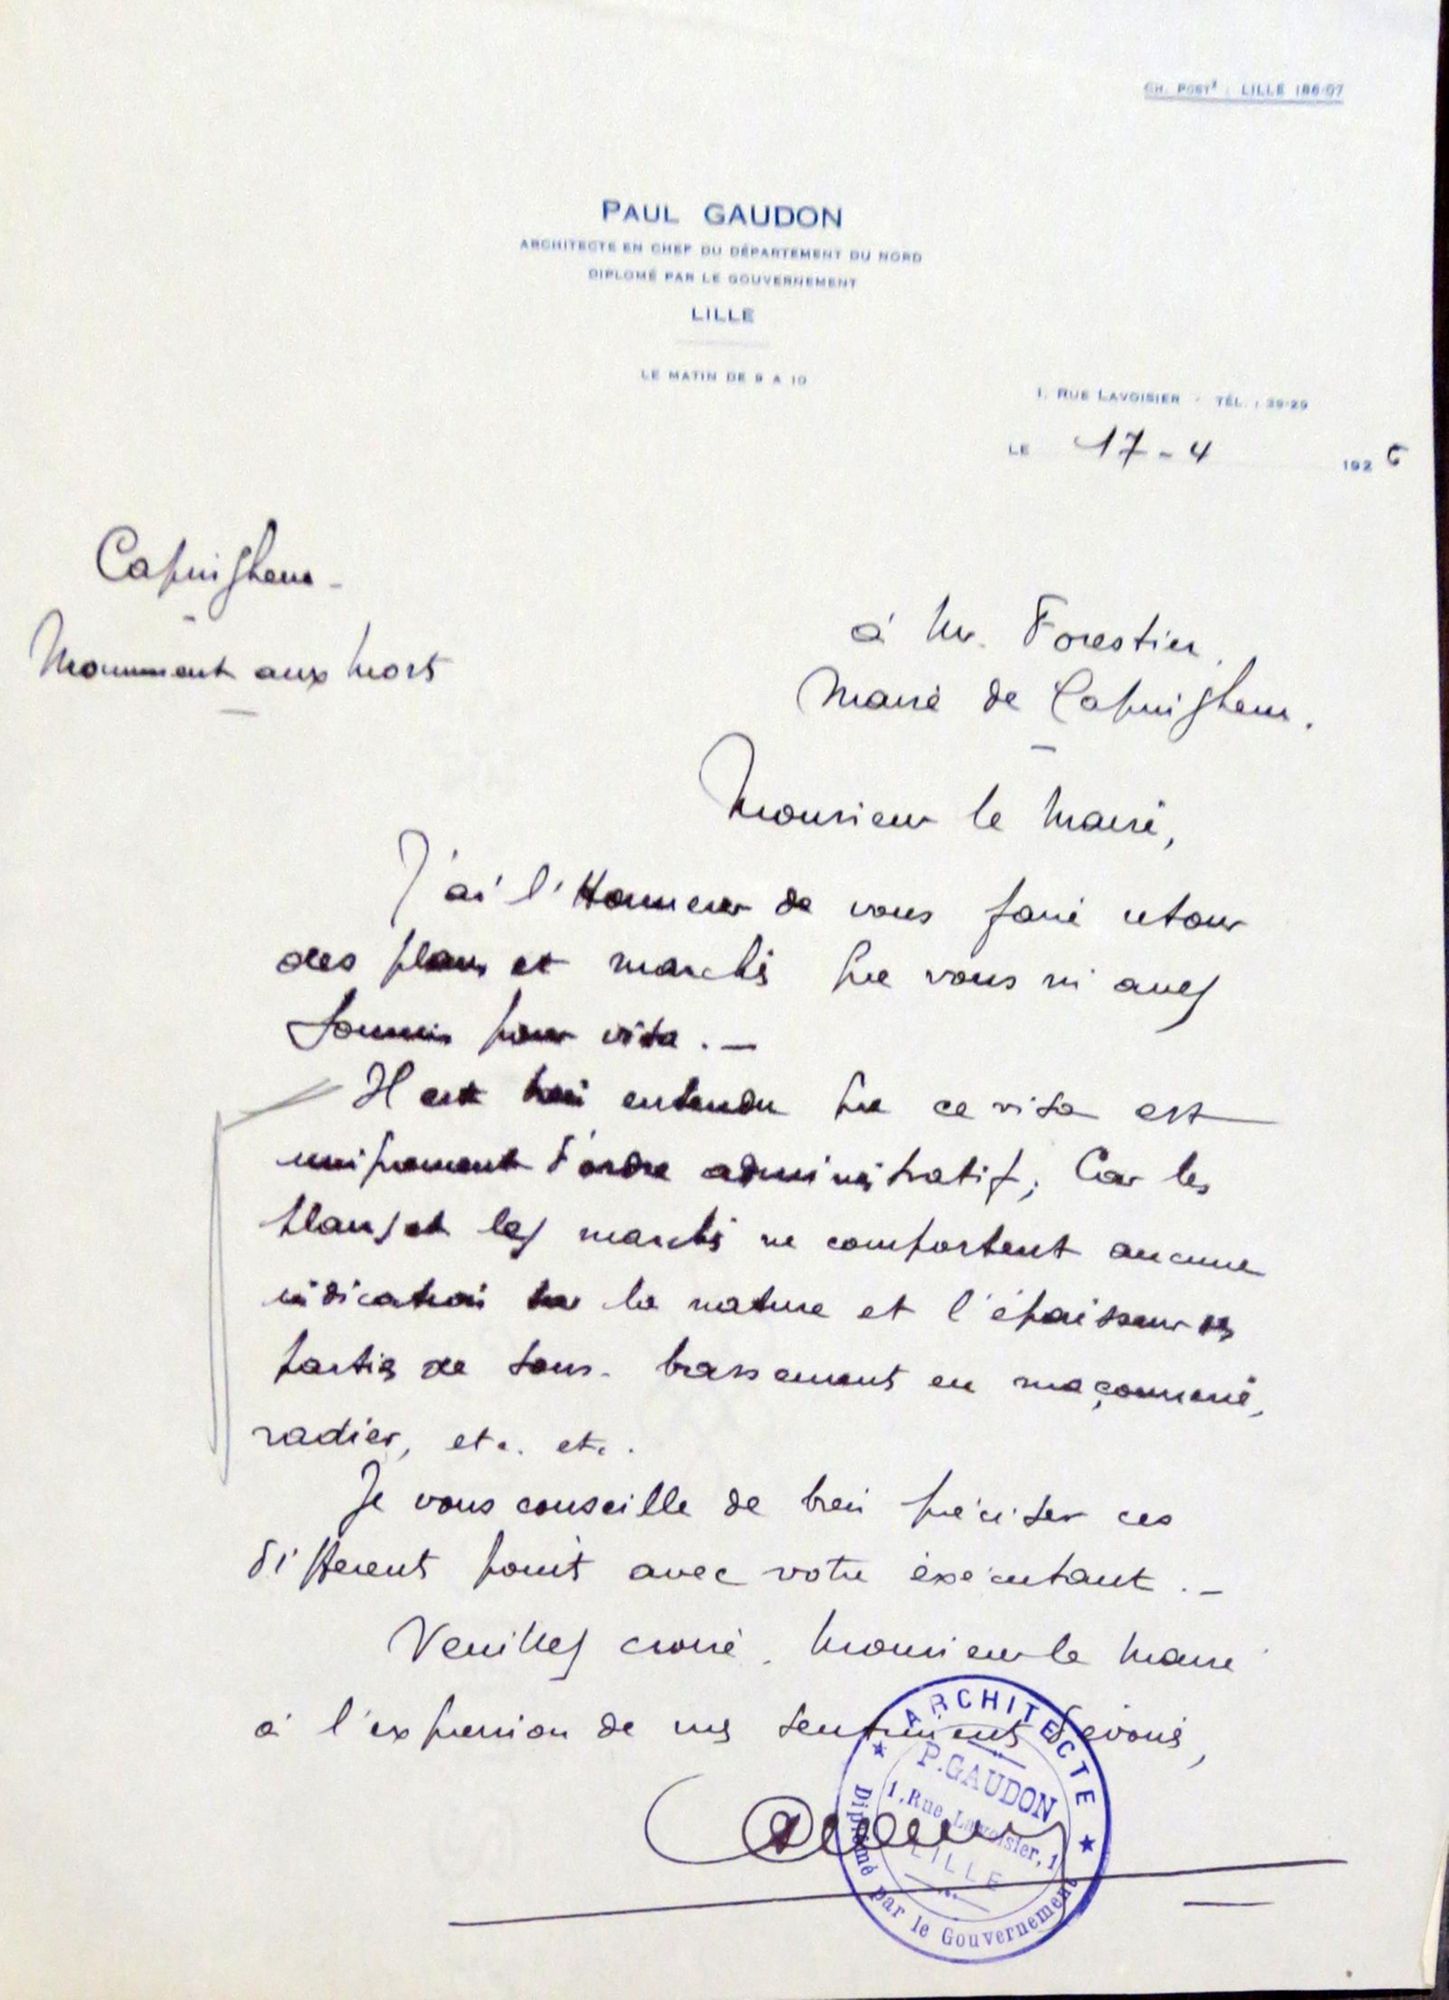 CH. POST^X : LILLE 186-97
PAUL GAUDON
ARCHITECTE EN CHEF DU DÉPARTEMENT DU NORD
DIPLOMÉ PAR LE GOUVERNEMENT
LILLE
LE MATIN DE 9 A 10
1, RUE LAVOISIER - TÉL. : 39-29
LE 17-4 1926
Capinghem -
Monument aux Morts
à Mr. Forestier,
Maire de Capinghem.
Monsieur le Maire,
J'ai l'Honneur de vous faire retour
des plans et marchés que vous m'avez
soumis pour visa. -
Il est bien entendu que ce visa est
uniquement d'ordre administratif, Car les
plans et les marchés ne comportent aucune
indication sur la nature et l'épaisseur des
parties de sous-bassements en maçonnerie,
radier, etc. etc.
Je vous conseille de bien préciser ces
différents points avec votre exécutant. -
Veuillez croire, Monsieur le Maire
à l'expression de mes sentiments dévoués,
ARCHITECTE
P. GAUDON
1, Rue Lavoisier, 1
LILLE
Diplômé par le Gouvernement